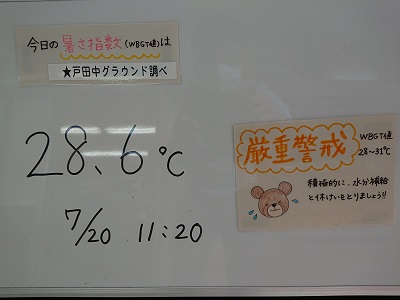 今日の暑さ指数(WBGT値)は
★戸田中グラウンド調べ
28.6℃
7/20 11:20
厳重警戒
WBGT値
28~31℃
積極的に、水分補給
と休けいをとりましょう!!